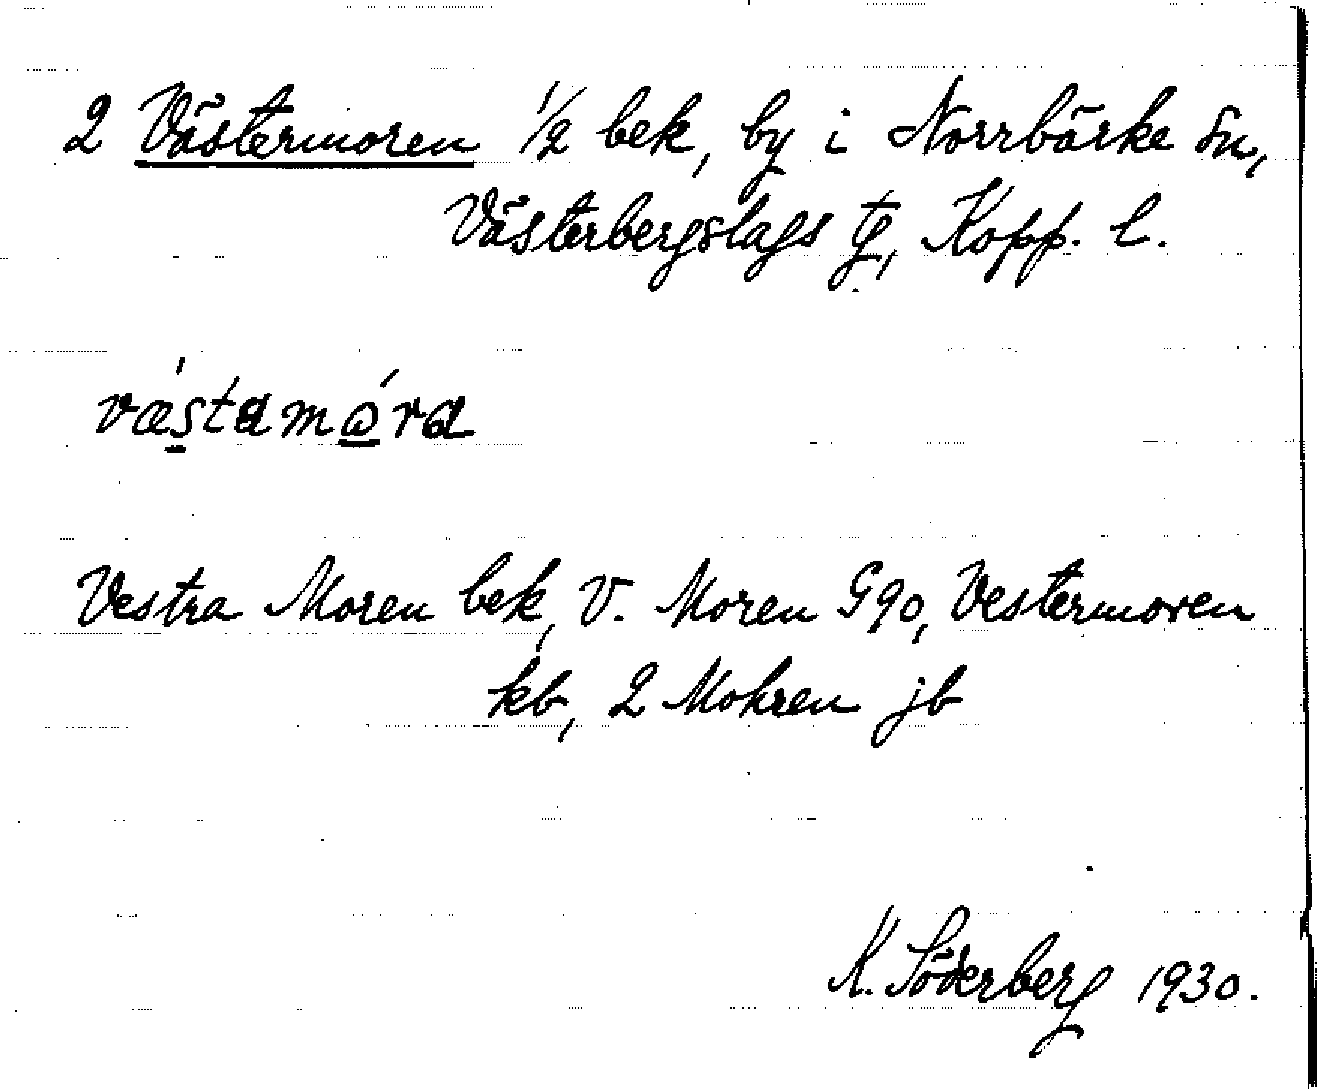 2 Västermoren 1/2 bek, by i Norrbärke sn,
Västerbergslags tg, Kopp. l.
vǽstamὼra
Vestra Moren bek, V. Moren G90, Vestermoren
kb, 2 Mohren jb
K. Söderberg 1930.